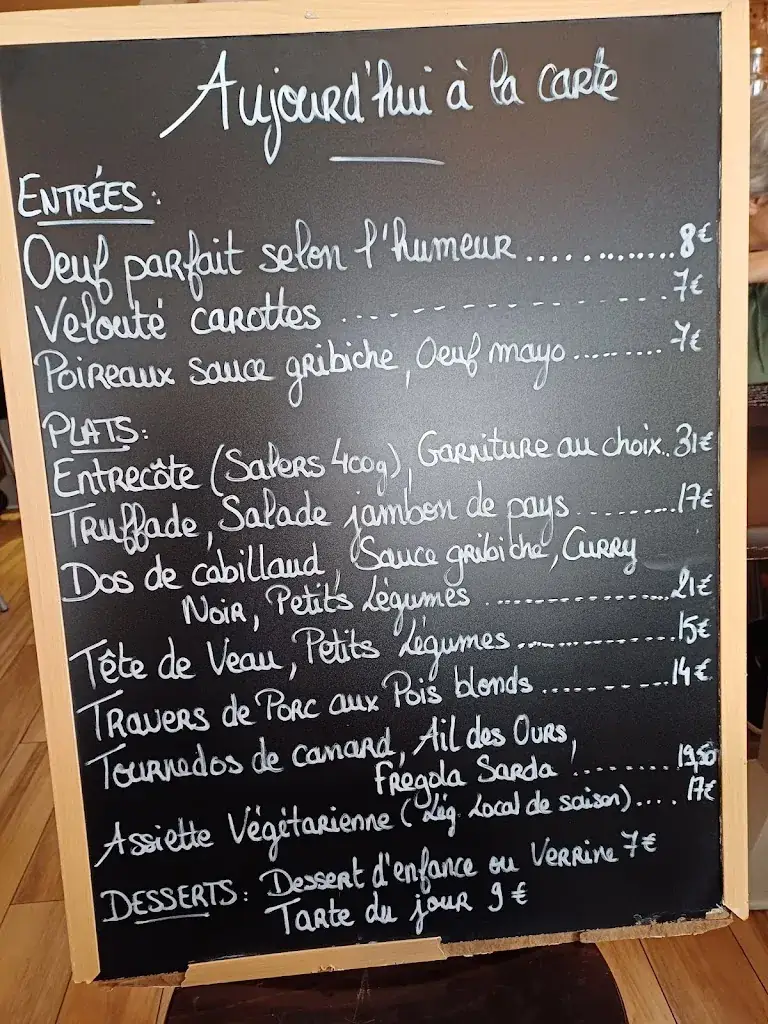 Aujourd'hui à la carte
ENTRÉES:
Oeuf parfait selon l'humeur ............. 8€
Velouté carottes ................ 7€
Poireaux sauce gribiche, Oeuf mayo ......... 7€
PLATS:
Entrecôte (Salers 400g), Garniture au choix.. 31€
Truffade, Salade jambon de pays .......... 17€
Dos de cabillaud, Sauce gribiche, Curry
Noir, Petits Légumes .................. 21€
Tête de Veau, Petits Légumes ............... 15€
Travers de Porc aux Pois blonds ........... 14€
Tournedos de canard, Ail des Ours,
Fregola Sarda ......... 19,50
Assiette Végétarienne (Lég. Local de saison).... 17€
DESSERTS: Dessert d'enfance ou Verrine 7€
Tarte du jour 9€